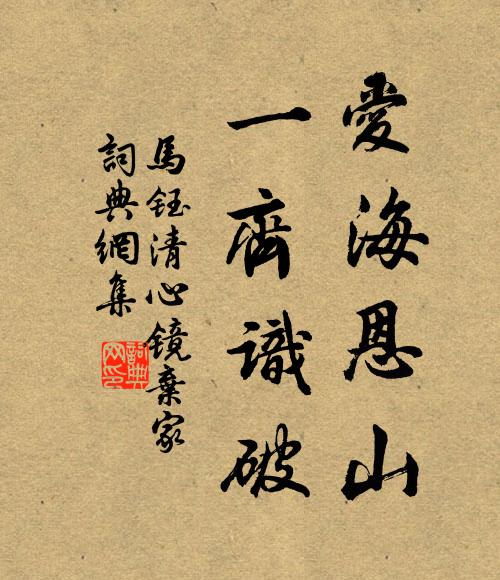 愛海恩山
一齊識破
馬鈺清心镜棄家
詞典網集
詞典
网印